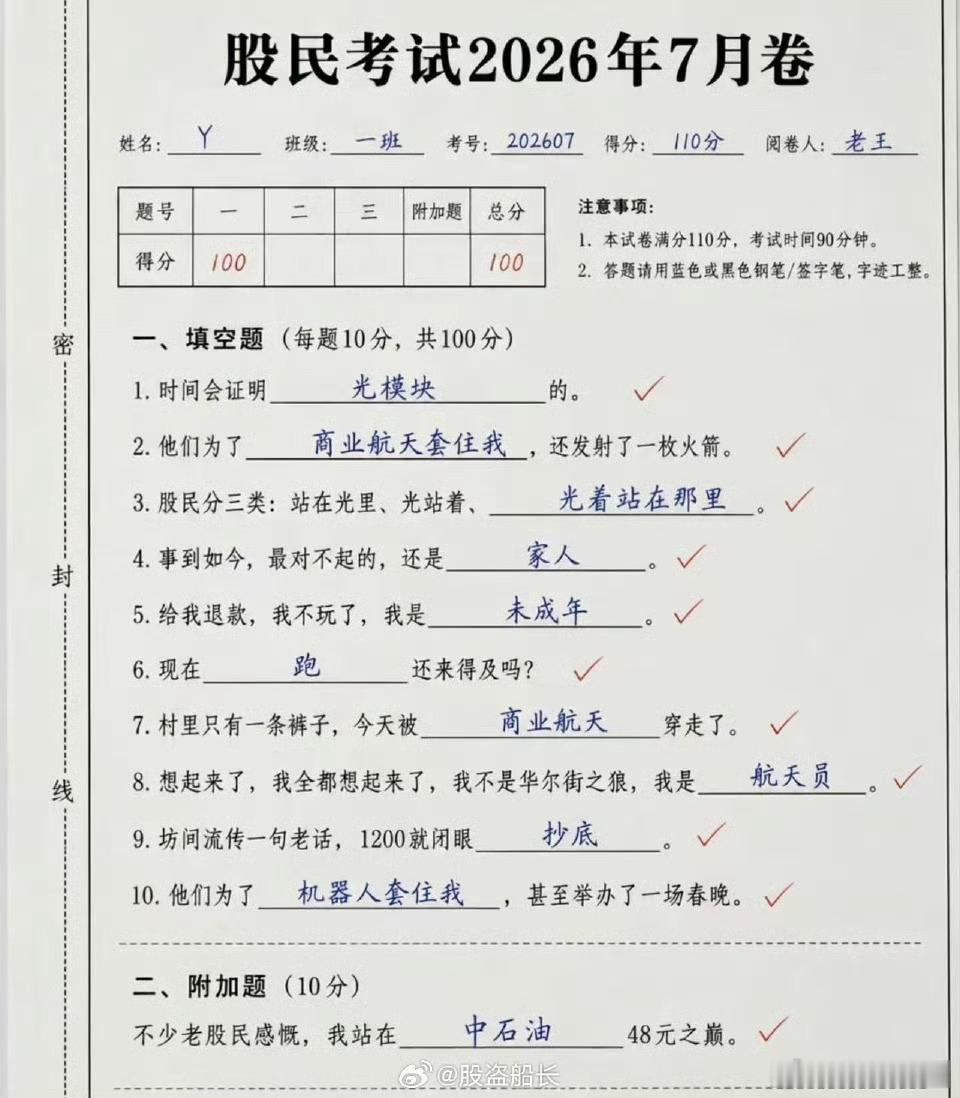 股民考试2026年7月卷
姓名: Y 班级: 一班 考号: 202607 得分: 110分 阅卷人: 老王
题号 一 二 三 附加题 总分
得分 100 100
注意事项:
1. 本试卷满分110分，考试时间90分钟。
2. 答题请用蓝色或黑色钢笔/签字笔,字迹工整。
密
封
线
一、填空题（每题10分，共100分）
1. 时间会证明 光模块 的。
2. 他们为了 商业航天套住我 ，还发射了一枚火箭。
3. 股民分三类：站在光里、光站着、 光着站在那里 。
4. 事到如今，最对不起的，还是 家人 。
5. 给我退款，我不玩了，我是 未成年 。
6. 现在 跑 还来得及吗?
7. 村里只有一条裤子，今天被 商业航天 穿走了。
8. 想起来了，我全都想起来了，我不是华尔街之狼，我是 航天员 。
9. 坊间流传一句老话，1200就闭眼 抄底 。
10. 他们为了 机器人套住我 ，甚至举办了一场春晚。
二、附加题（10分）
不少老股民感慨，我站在 中石油 48元之巅。
@股盗船长